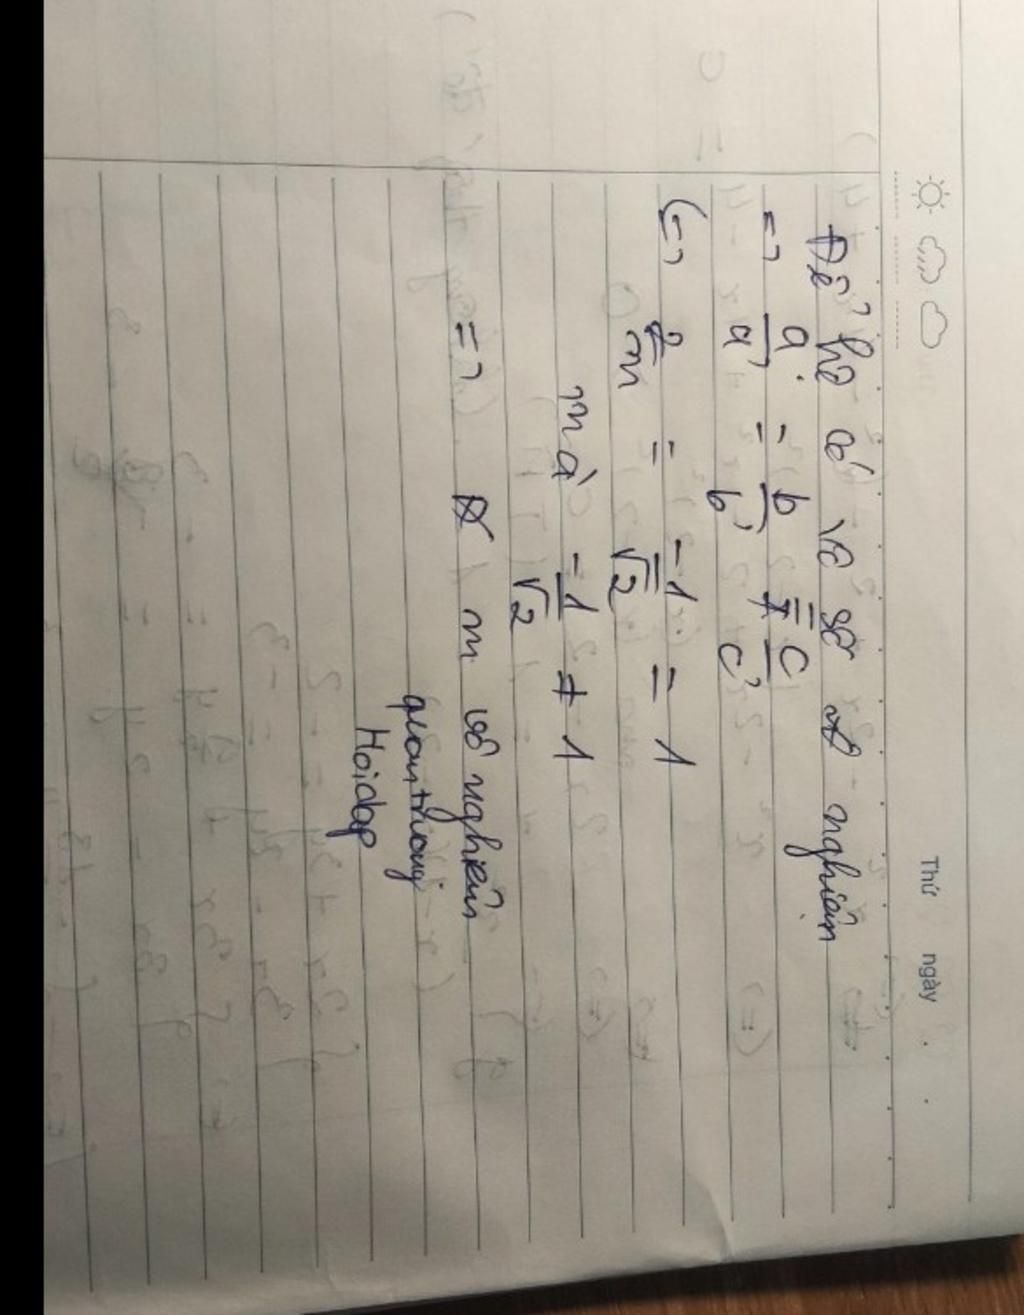 Thứ ngày
Để hệ có vô số nghiệm
=> a/a' = b/b' = c/c'
<=> 2/m = -1/√2 = 1
mà -1/√2 ≠ 1
=> m vô nghiệm
quantruong
Hoidap